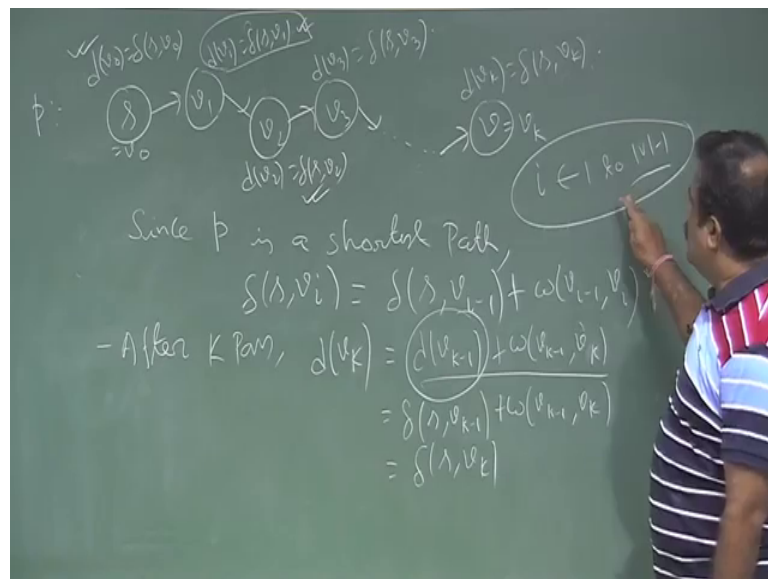 d(v₀)=δ(s,v₀) d(v₁)=δ(s,v₁) d(v₃)=δ(s,v₃). d(v_k)=δ(s,v_k).
p: s → v₁ → v₂ → v₃ → ...... → v=v_k
=v₀
d(v₂)=δ(s,v₂)
i ← 1 to |V|-1
Since p is a shortest Path,
δ(s,v_i) = δ(s,v_{i-1}) + ω(v_{i-1},v_i)
- After K Pass, d(v_K) = d(v_{K-1}) + ω(v_{K-1},v_K)
= δ(s,v_{K-1}) + ω(v_{K-1},v_K)
= δ(s,v_K)